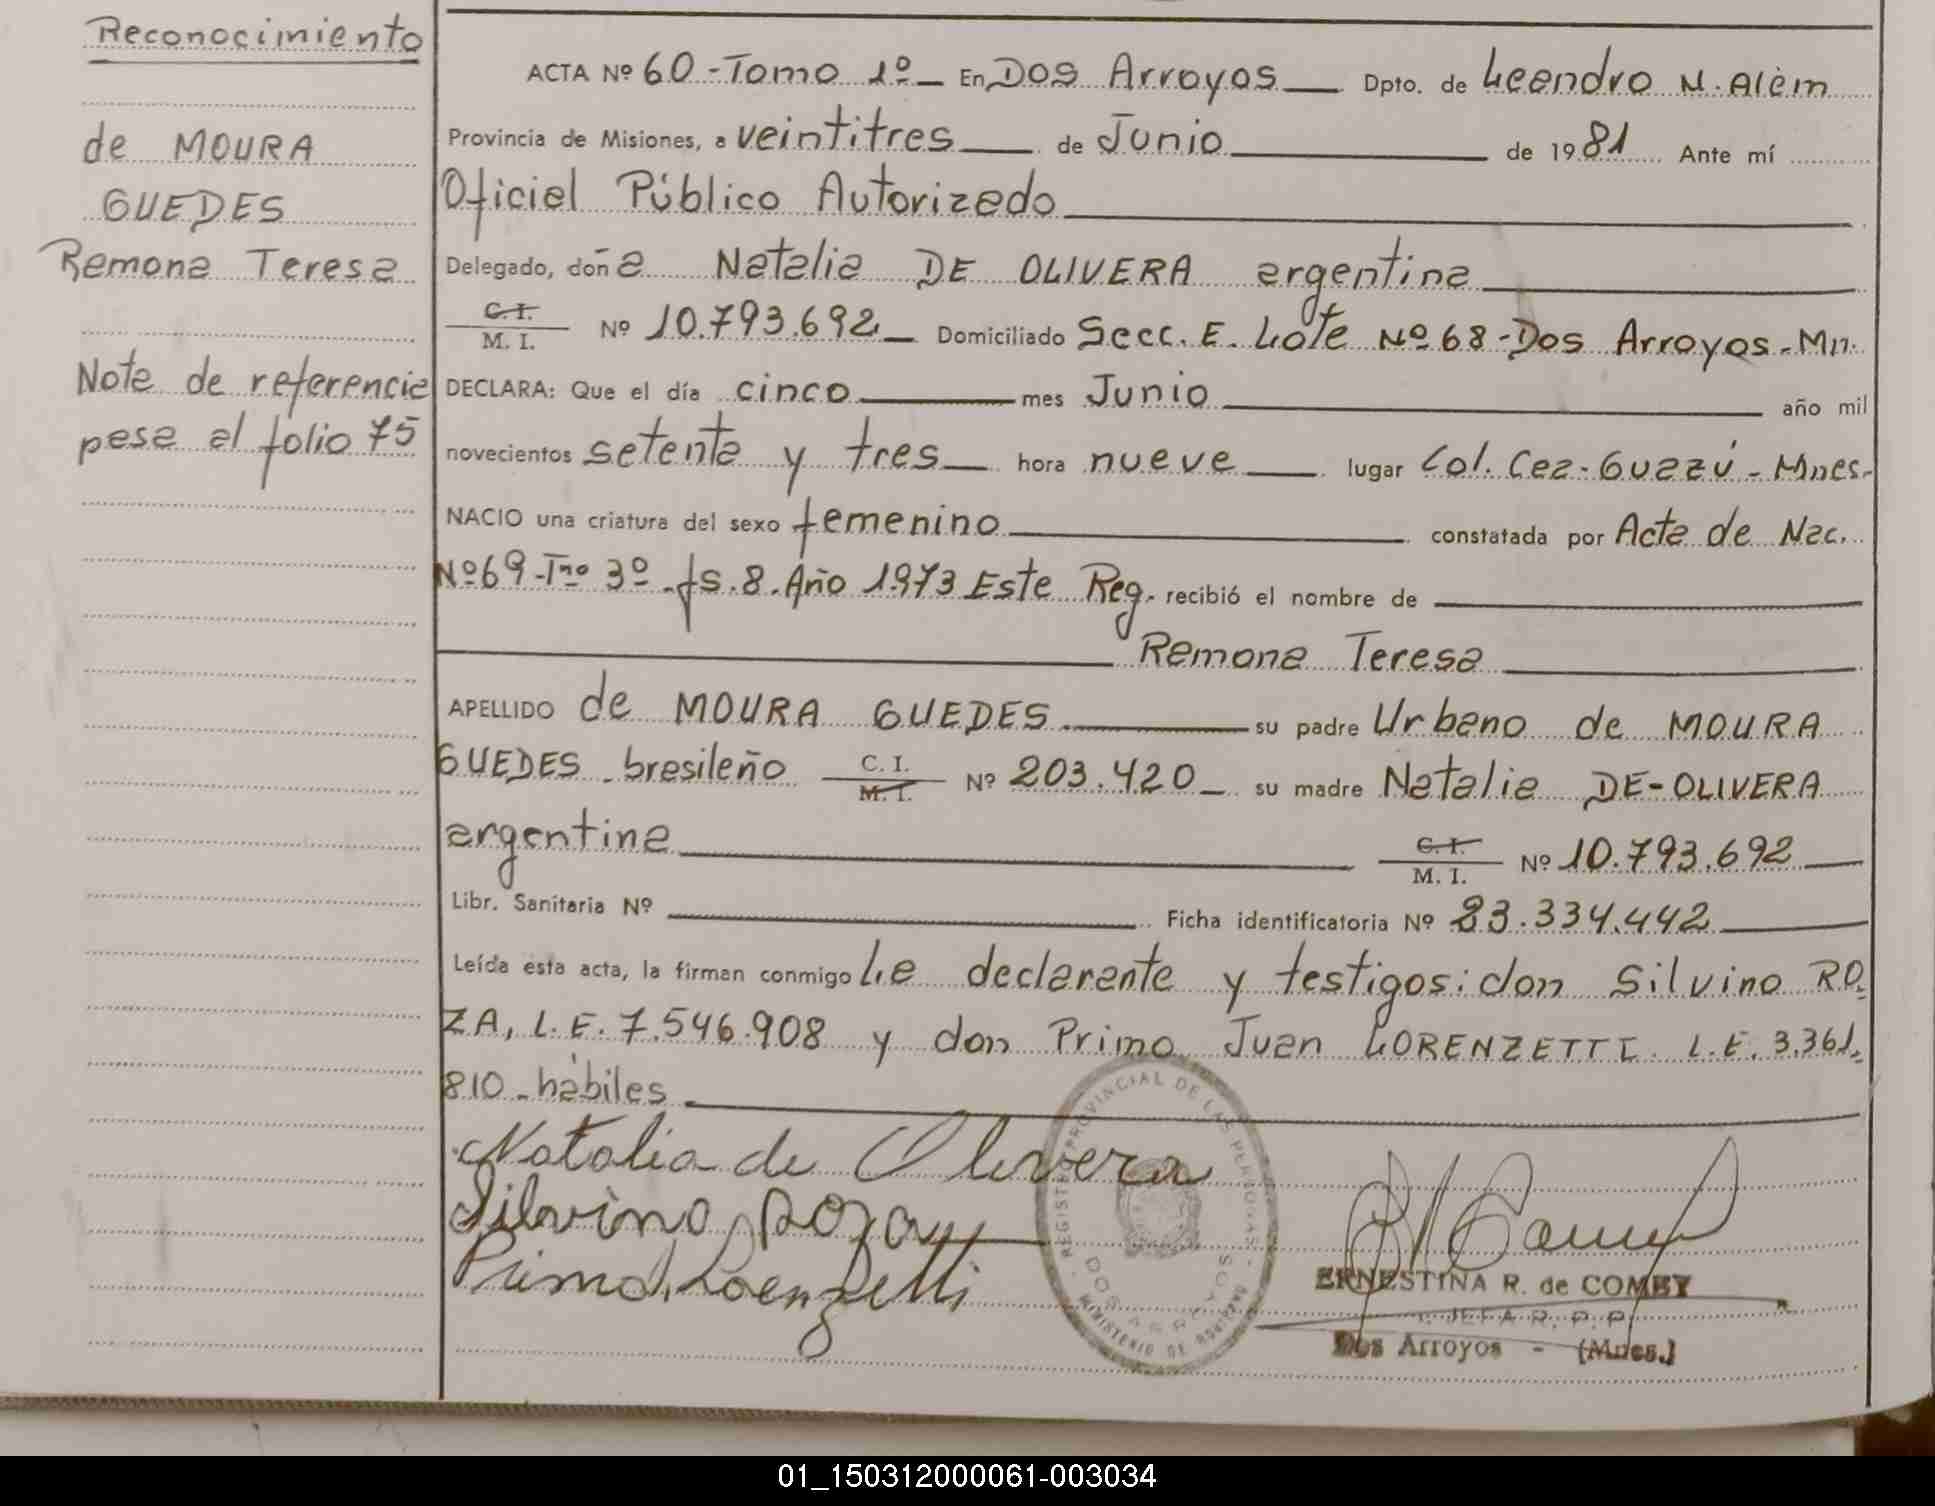 Reconocimiento
de MOURA
GUEDES
Ramona Teresa
Nota de referencia
pasa al folio 75
ACTA Nº 60 - Tomo 1º - En Dos Arroyos Dpto. de Leandro N. Alem
Provincia de Misiones, a veintitres de Junio de 1981 Ante mí
Oficial Público Autorizado
Delegado, doña Natalia DE OLIVERA argentina
C. I.
M. I. Nº 10.793.692 Domiciliado Secc. E. Lote Nº 68 - Dos Arroyos - Mn.
DECLARA: Que el día cinco mes Junio año mil
novecientos setenta y tres hora nueve lugar Col. Caa-Guazú - Mnes.
NACIO una criatura del sexo femenino constatada por Acta de Nac.
Nº 69 - Tmo 3º - fs. 8. Año 1973 Este Reg. recibió el nombre de
Ramona Teresa
APELLIDO de MOURA GUEDES su padre Urbano de MOURA
GUEDES - brasileño C. I.
M. I. Nº 203.420 su madre Natalia DE-OLIVERA
argentina C. I.
M. I. Nº 10.793.692
Libr. Sanitaria Nº Ficha identificatoria Nº 23.334.442
Leída esta acta, la firman conmigo La declarante y testigos: don Silvino RO-
ZA, L.E. 7.546.908 y don Primo Juan LORENZETTI L.E. 3.361.
810 - hábiles
Natalia de Olivera
Silvino Roza
Primo J. Lorenzetti
REGISTRO PROVINCIAL DE LAS PERSONAS
DOS ARROYOS
MINISTERIO DE GOBIERNO
ERNESTINA R. de COMBY
JEFA R. P. P.
Dos Arroyos - (Mnes.)
01_150312000061-003034